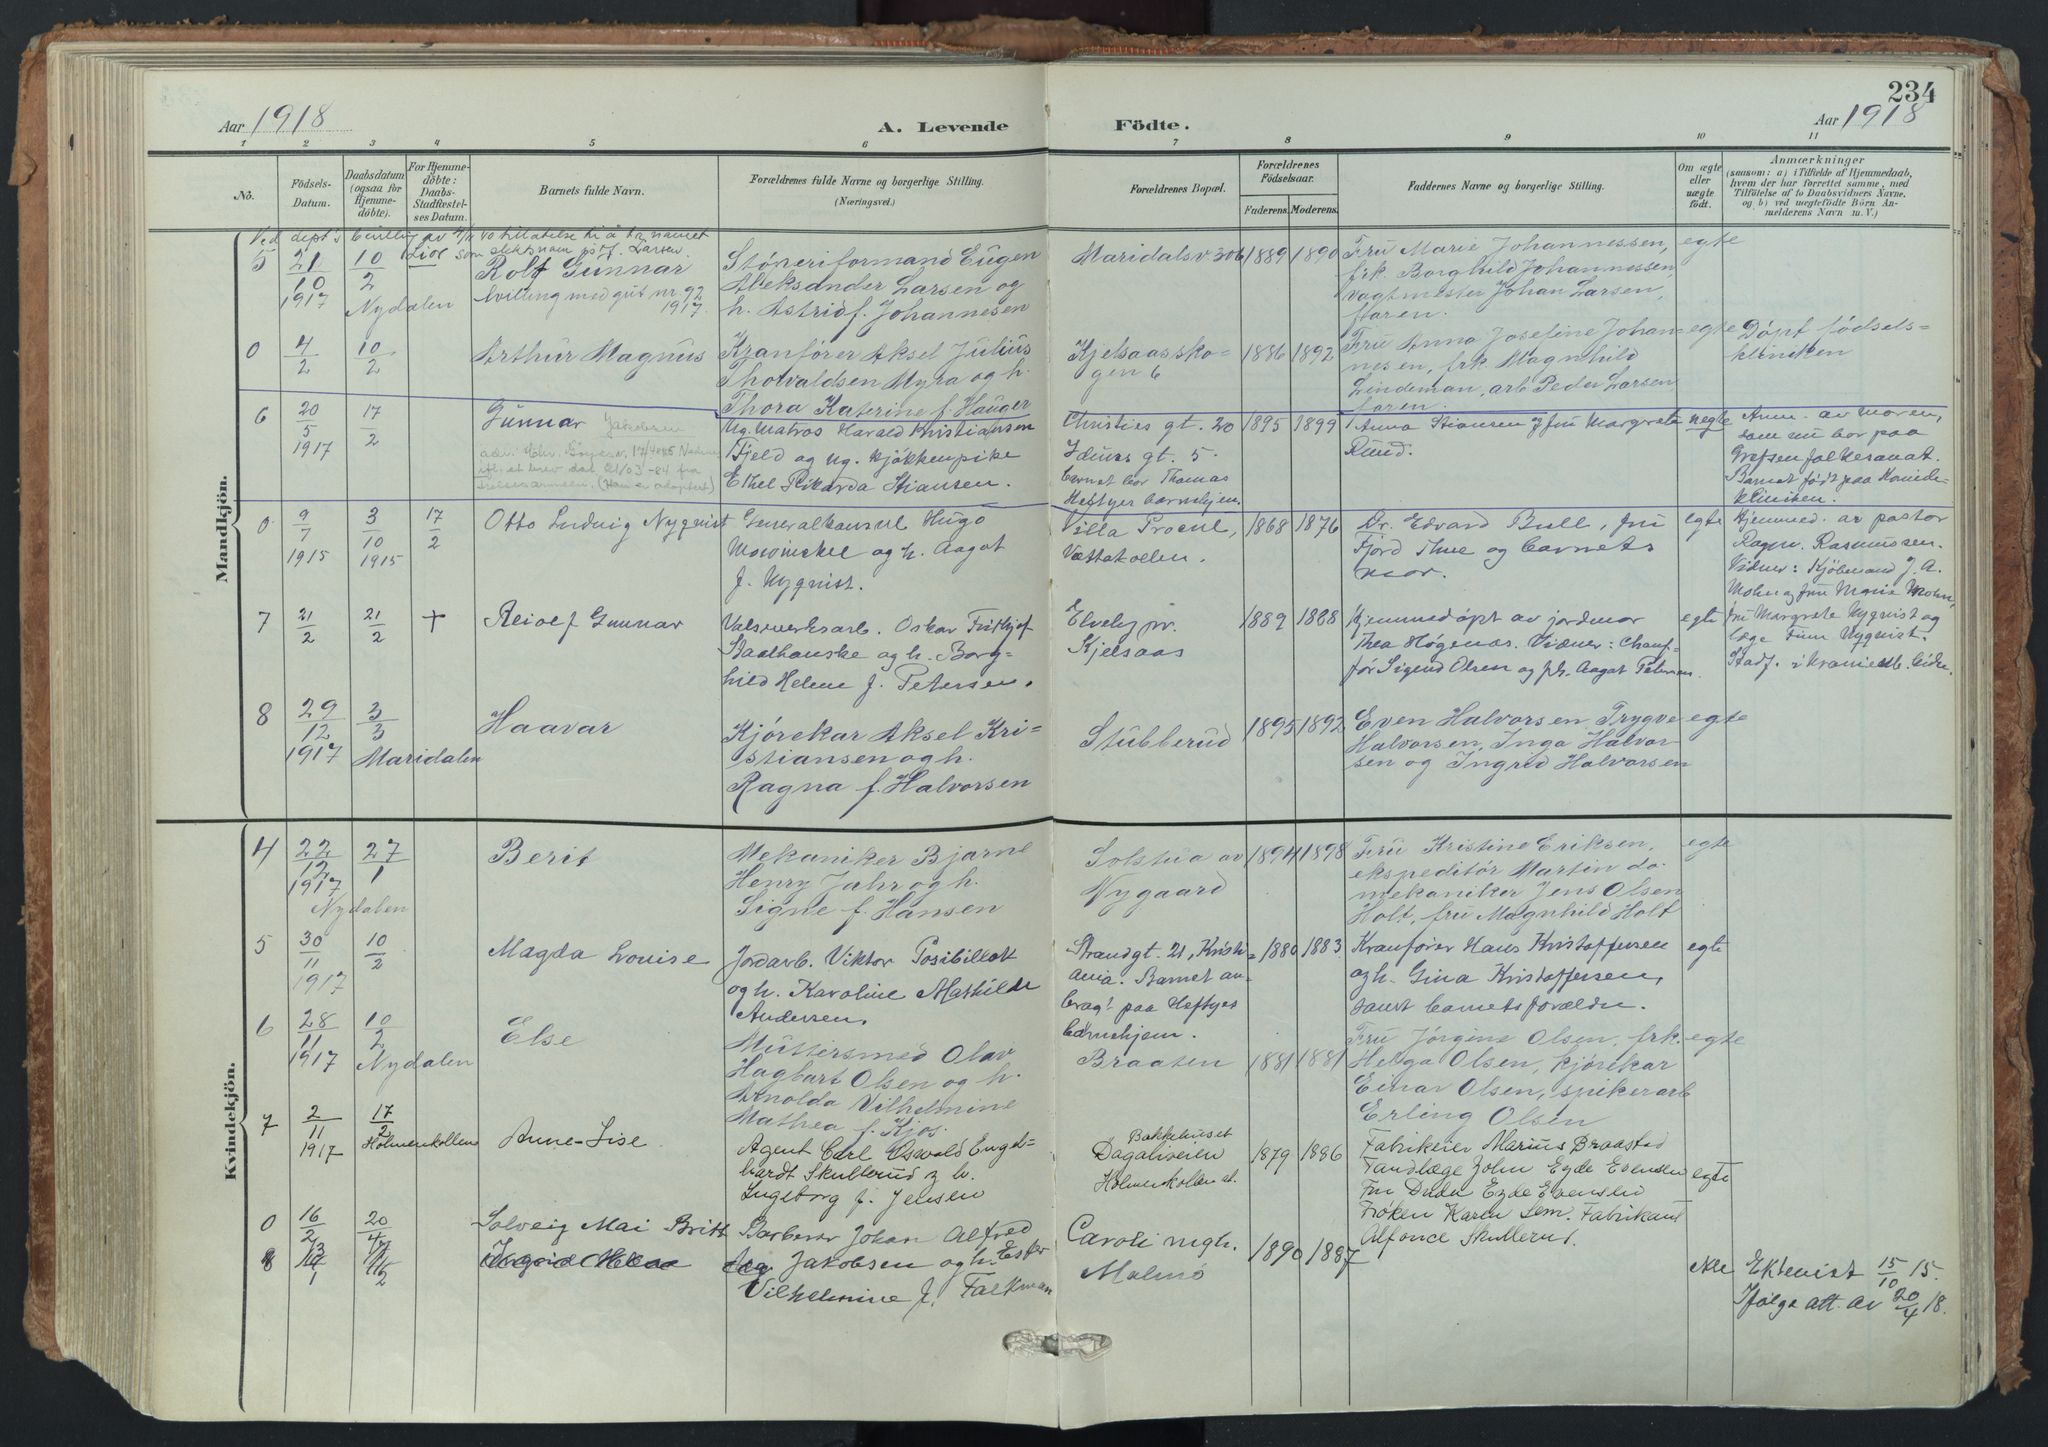 234
Aar 1918
A. Levende Födte.
Aar 1918
1 2 3 4 5 6 7 8 9 10 11
No.
Födsels-
Datum.
Daabsdatum
(ogsaa for
Hjemme-
döbte).
For Hjemme-
döbte:
Daabs-
Stadfæstel-
ses Datum.
Barnets fulde Navn.
Forældrenes fulde Navne og borgerlige Stilling.
(Næringsvei.)
Forældrenes Bopæl.
Forældrenes
Födselsaar.
Faderens. Moderens.
Faddernes Navne og borgerlige Stilling.
Om ægte
eller
uægte
födt.
Anmærkninger
(saasom: a) i Tilfælde af Hjemmedaab,
hvem der har forrettet samme, med
Tilföielse af to Daabsvidners Navne,
og b) ved uægtefödte Börn An-
melderens Navn m. V.)
Mandkjön.
Ved dept's bevilling av 4/11 40 tillatelse til å ta navnet
Liol som slektsnam istf. Larsen.
5
21/10
1917
10/2
Nydalen
Rolf Gunnar
tvilling med gut nr 92
1917.
Støperiformand Eugen
Aleksander Larsen og
h. Astrid f. Johannesen
Maridalsv. 306
1889
1890
Fru Marie Johannessen,
frk. Borghild Johannessen,
vagtmester Johan Larsen,
faren.
egte
0
4/2
10/2
Arthur Magnus
Kranfører Aksel Julius
Thorvaldsen Myra og h.
Thora Katerine f. Hauger
Kjelsaassko-
gen 6
1886
1892
Fru Anna Josefine Johan-
nesen, frk. Magnhild
Lindeman, arb Peder Larsen
faren.
egte
Døpt fødsels-
kliniken
6
20/5
1917
17/2
Gunnar Jakobsen
(Han er adoptert)
Ug. Matros Harald Kristiansen
Fjeld og ug. kjøkkenpike
Ethel Rikarda Stiansen.
Christies gt. 20
Iduns gt. 5.
Barnet bor Thomas
Heftyes barnehjem.
1895
1899
Anna Stiansen og fru Margrete
Rund.
uegte
Anm. av moren,
som nu bor paa
Grefsen folkesanat.
Barnet født paa Kvinde-
kliniken.
0
9/7
1915
3/10
1915
17/2
Otto Ludvig Nyquist
Generalkonsul Hugo
Mowinckel og h. Aagot
f. Nyquist.
Villa
Vettakollen.
1868
1876
Dr. Edvard Bull, fru
Fjord Thue og barnets
mor.
egte
Hjemmed. av pastor
Ragnv. Rasmussen.
Vidner: Kjøbmand J. A.
Mohn og fru Marie Mohn,
fru Margrete Nyquist og
læge Finn Nyquist.
7
21/2
21/2
+
Reiolf Gunnar
Valseverksarb. Oskar Frithjof
Staalhanske og h. Borg-
hild Helene f. Petersen.
Elvehj pr.
Kjelsaas
1889
1888
Hjemmedøpt av jordmor
Thea Høgenæs. Vidner: Chauf-
før Sigurd Olsen og frk. Aagot Petersen.
egte
8
29/12
1917
3/3
Maridalen
Haavar
Kjørekar Aksel Kri-
stiansen og h.
Ragna f. Halvorsen
Stubberud
1895
1892
Even Halvorsen Trygve
Halvorsen, Inga Halvor-
sen og Ingrid Halvorsen
egte
Kvindekjön.
4
22/12
1917
27/1
Nydalen
Berit
Mekaniker Bjarne
Henry Jahr og h.
Signe f. Hansen
Solstua av
Nygaard
1894
1898
Fru Kristine Eriksen,
ekspeditør Martin do.
mekaniker Jens Olsen
Holt, fru Magnhild Holt
egte
5
30/11
1917
10/2
Magda Louise
Jordarb. Viktor Posibillott
og h. Karoline Mathilde
Andersen.
Strandgt. 21, Kristi-
ania. Barnet an-
bragt paa Heftyes
barnehjem.
1880
1883
Kranfører Hans Kristoffersen
og h. Gina Kristoffersen,
samt barnets forældre.
egte
6
28/11
1917
10/2
Nydalen
Else
Muttersmed Olav
Hagbart Olsen og h.
Arnolda Vilhelmine
Mathea f. Kjos.
Braaten
1881
1881
Fru Jørgine Olsen, frk.
Helga Olsen, kjørekar
Einar Olsen, spikerarb
Erling Olsen
egte
7
2/11
1917
17/2
Holmenkollens
Anne-Lise
Agent Carl Oswald Engel-
hardt Skullerud og h.
Ingeborg f. Jensen
Bakkehuset
Dagaliveien
Holmenkollen st.
1879
1886
Fabrikeier Marius Braastad
Tandlæge John Egde Evensen
Fru Dudu Egde Evensen
Frøken Karen Sem. Fabrikant
Alfonce Skullerud.
egte
0
16/2
20/4
Solveig Mai Britt
Barberer Johan Alfred
Jakobsen og h. Ester
Vilhelmine f. Falkman
Caroli mgh.
Malmö
1890
1887
8
Ekteviet 15/10 15.
Ifølge att. av 20/4 18.